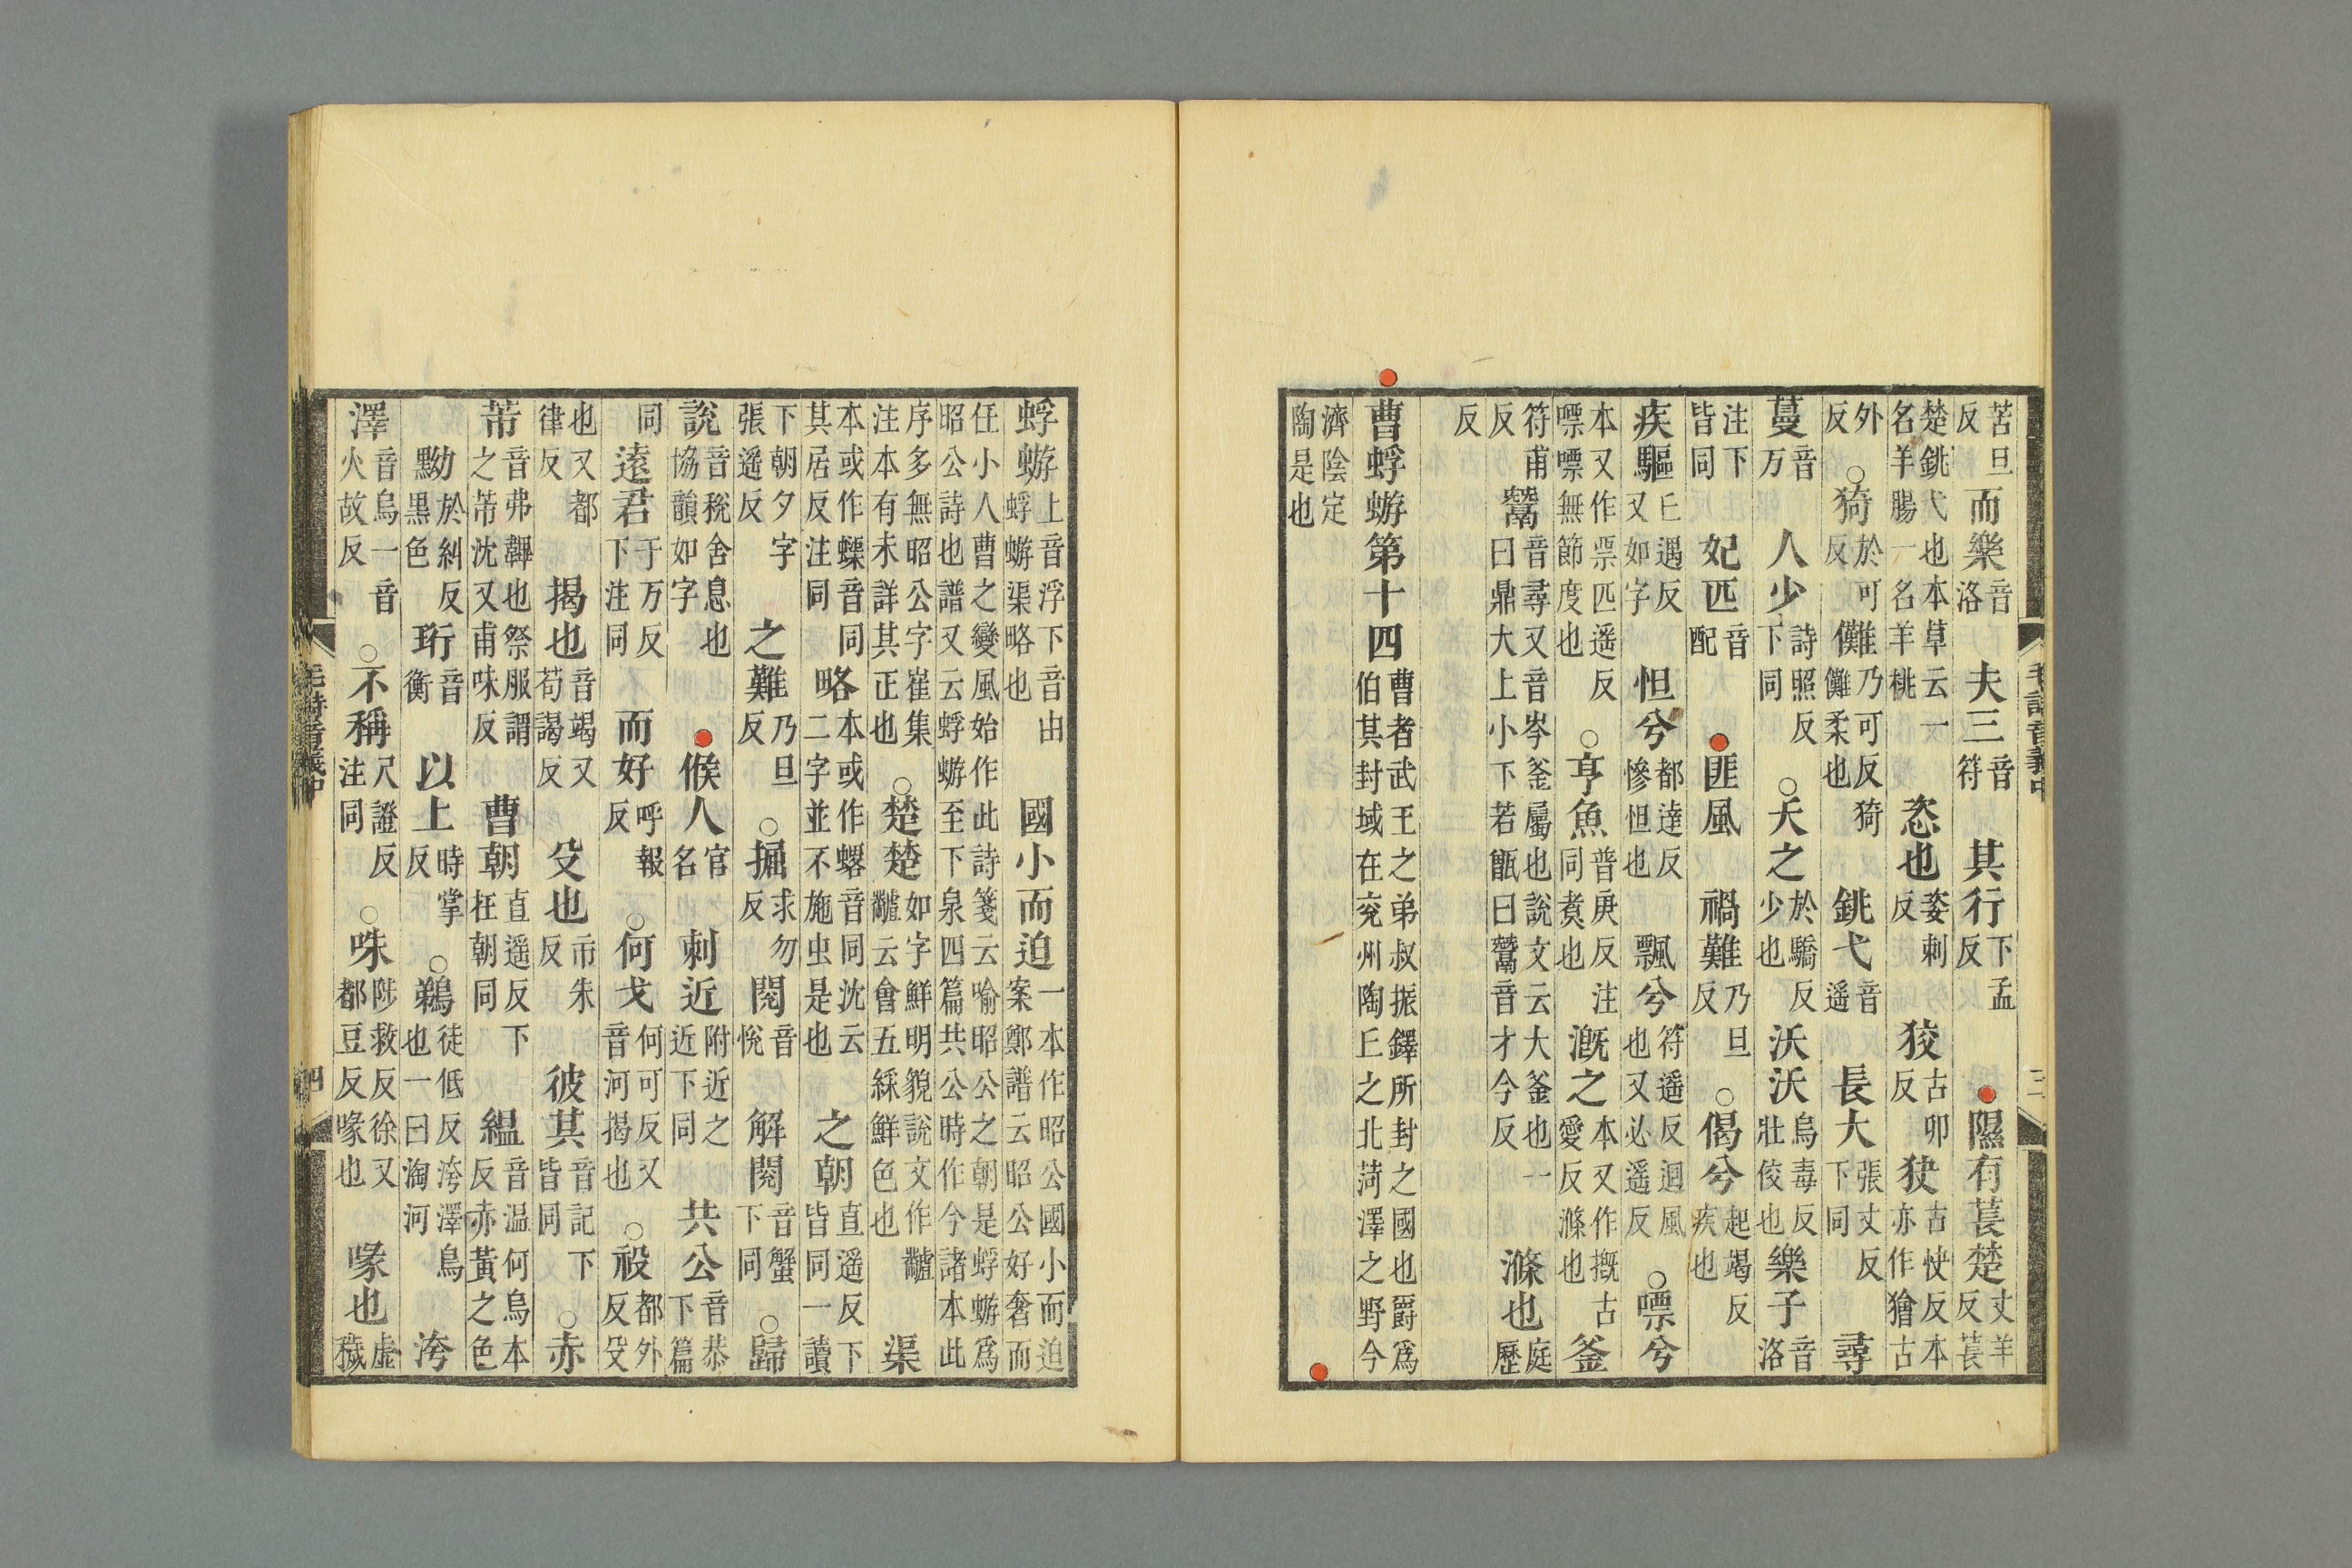 苦旦反而樂音洛夫三音符其行下孟反隰有萇楚丈羊反萇
楚銚弋也本草云一名羊腸一名羊桃恣也姿刺反狡古卯反古快反本亦作獪古
外反○猗於可反儺乃可反猗儺柔也銚弋音遥長大張丈反下同尋
蔓音万人少詩照反下同○夭之於驕反少也沃沃烏毒反壯佼也樂子音洛
注下皆同妃匹音配匪風禍難乃旦反○偈兮起竭反疾也
疾驅丘遇反又如字怛兮都達反慘怛也飄兮符遥反迴風也又必遥反○嘌兮
本又作票匹遥反嘌嘌無節度也○亨魚普庚反注同煑也溉之本又作摡古愛反滌也釜
符甫反鬵音尋又音岑釜屬也說文云大釜也一曰鼎大上小下若甑曰鬵音才今反滌也庭歷
反
曹蜉蝣第十四曹者武王之弟叔振鐸所封之國也爵爲伯其封域在兖州陶丘之北菏澤之野今
濟陰定陶是也
毛詩音義中
三
蜉蝣上音浮下音由蜉蝣渠略也國小而迫一本作昭公國小而迫案鄭譜云昭公好奢而
任小人曹之變風始作此詩箋云喻昭公之朝是蜉蝣爲昭公詩也譜又云蜉蝣至下泉四篇共公時作今諸本此
序多無昭公字崔集注本有未詳其正也○楚楚如字鮮明貌說文作䰞䰞云會五綵鮮色也渠
本或作蟝音同其居反注同略本或作䗉音同沈云二字並不施虫是也之朝直遥反下皆同一讀
下朝夕字張遥反之難乃旦反○掘求勿反閱音悅解閱音蟹下同○歸
說音稅舍息也協韻如字候人官名刺近附近之近下同共公音恭下篇
同遠君于万反下注同而好呼報反○何戈何可反又音河揭也○祋都外反殳
也又都律反揭也音竭又苟謁反殳也市朱反彼其音記下皆同○赤
芾音弗韠也祭服謂之芾沈又甫味反曹朝直遥反下枉朝同緼音温何烏本反赤黃之色
黝於糾反黑色珩音衡以上時掌反○鵜徒低反洿澤鳥也一曰淘河洿
澤音烏一音火故反○不稱尺證反注同○咮陟救反徐又都豆反喙也喙也虛穢
毛詩音義中
四